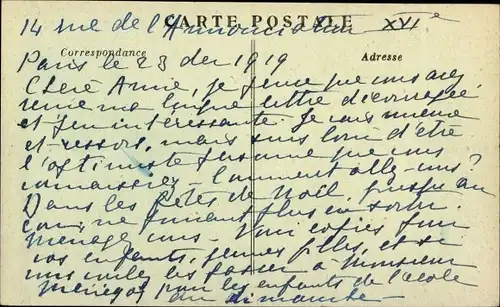 14 rue de l'Annonciation XVIe
CARTE POSTALE
Correspondance
Adresse
Paris le 23 dec 1919
Chère Amie, je pense que vous avez
ma longue lettre décousue
et peu intéressante. Je suis
et ressors, mais suis loin d'être
l'optimiste personne que vous
connaissiez - Comment allez-vous?
Dans les fêtes de Noël, jusqu'au
cou, ne pouvant plus en sortir.
Ménagez vous - Voici copies pour
vos enfants, jeunes filles, et si
vous voulez les passer à Monsieur
pour les enfants de l'école
du dimanche -